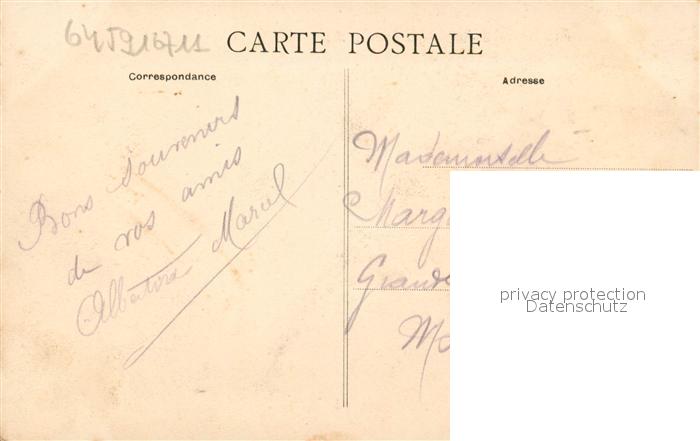 645916711
CARTE POSTALE
Correspondance
Adresse
Bons souvenirs
de vos amis
Albertine Marcel
Mademoiselle
Marg
Grande
privacy protection
Datenschutz